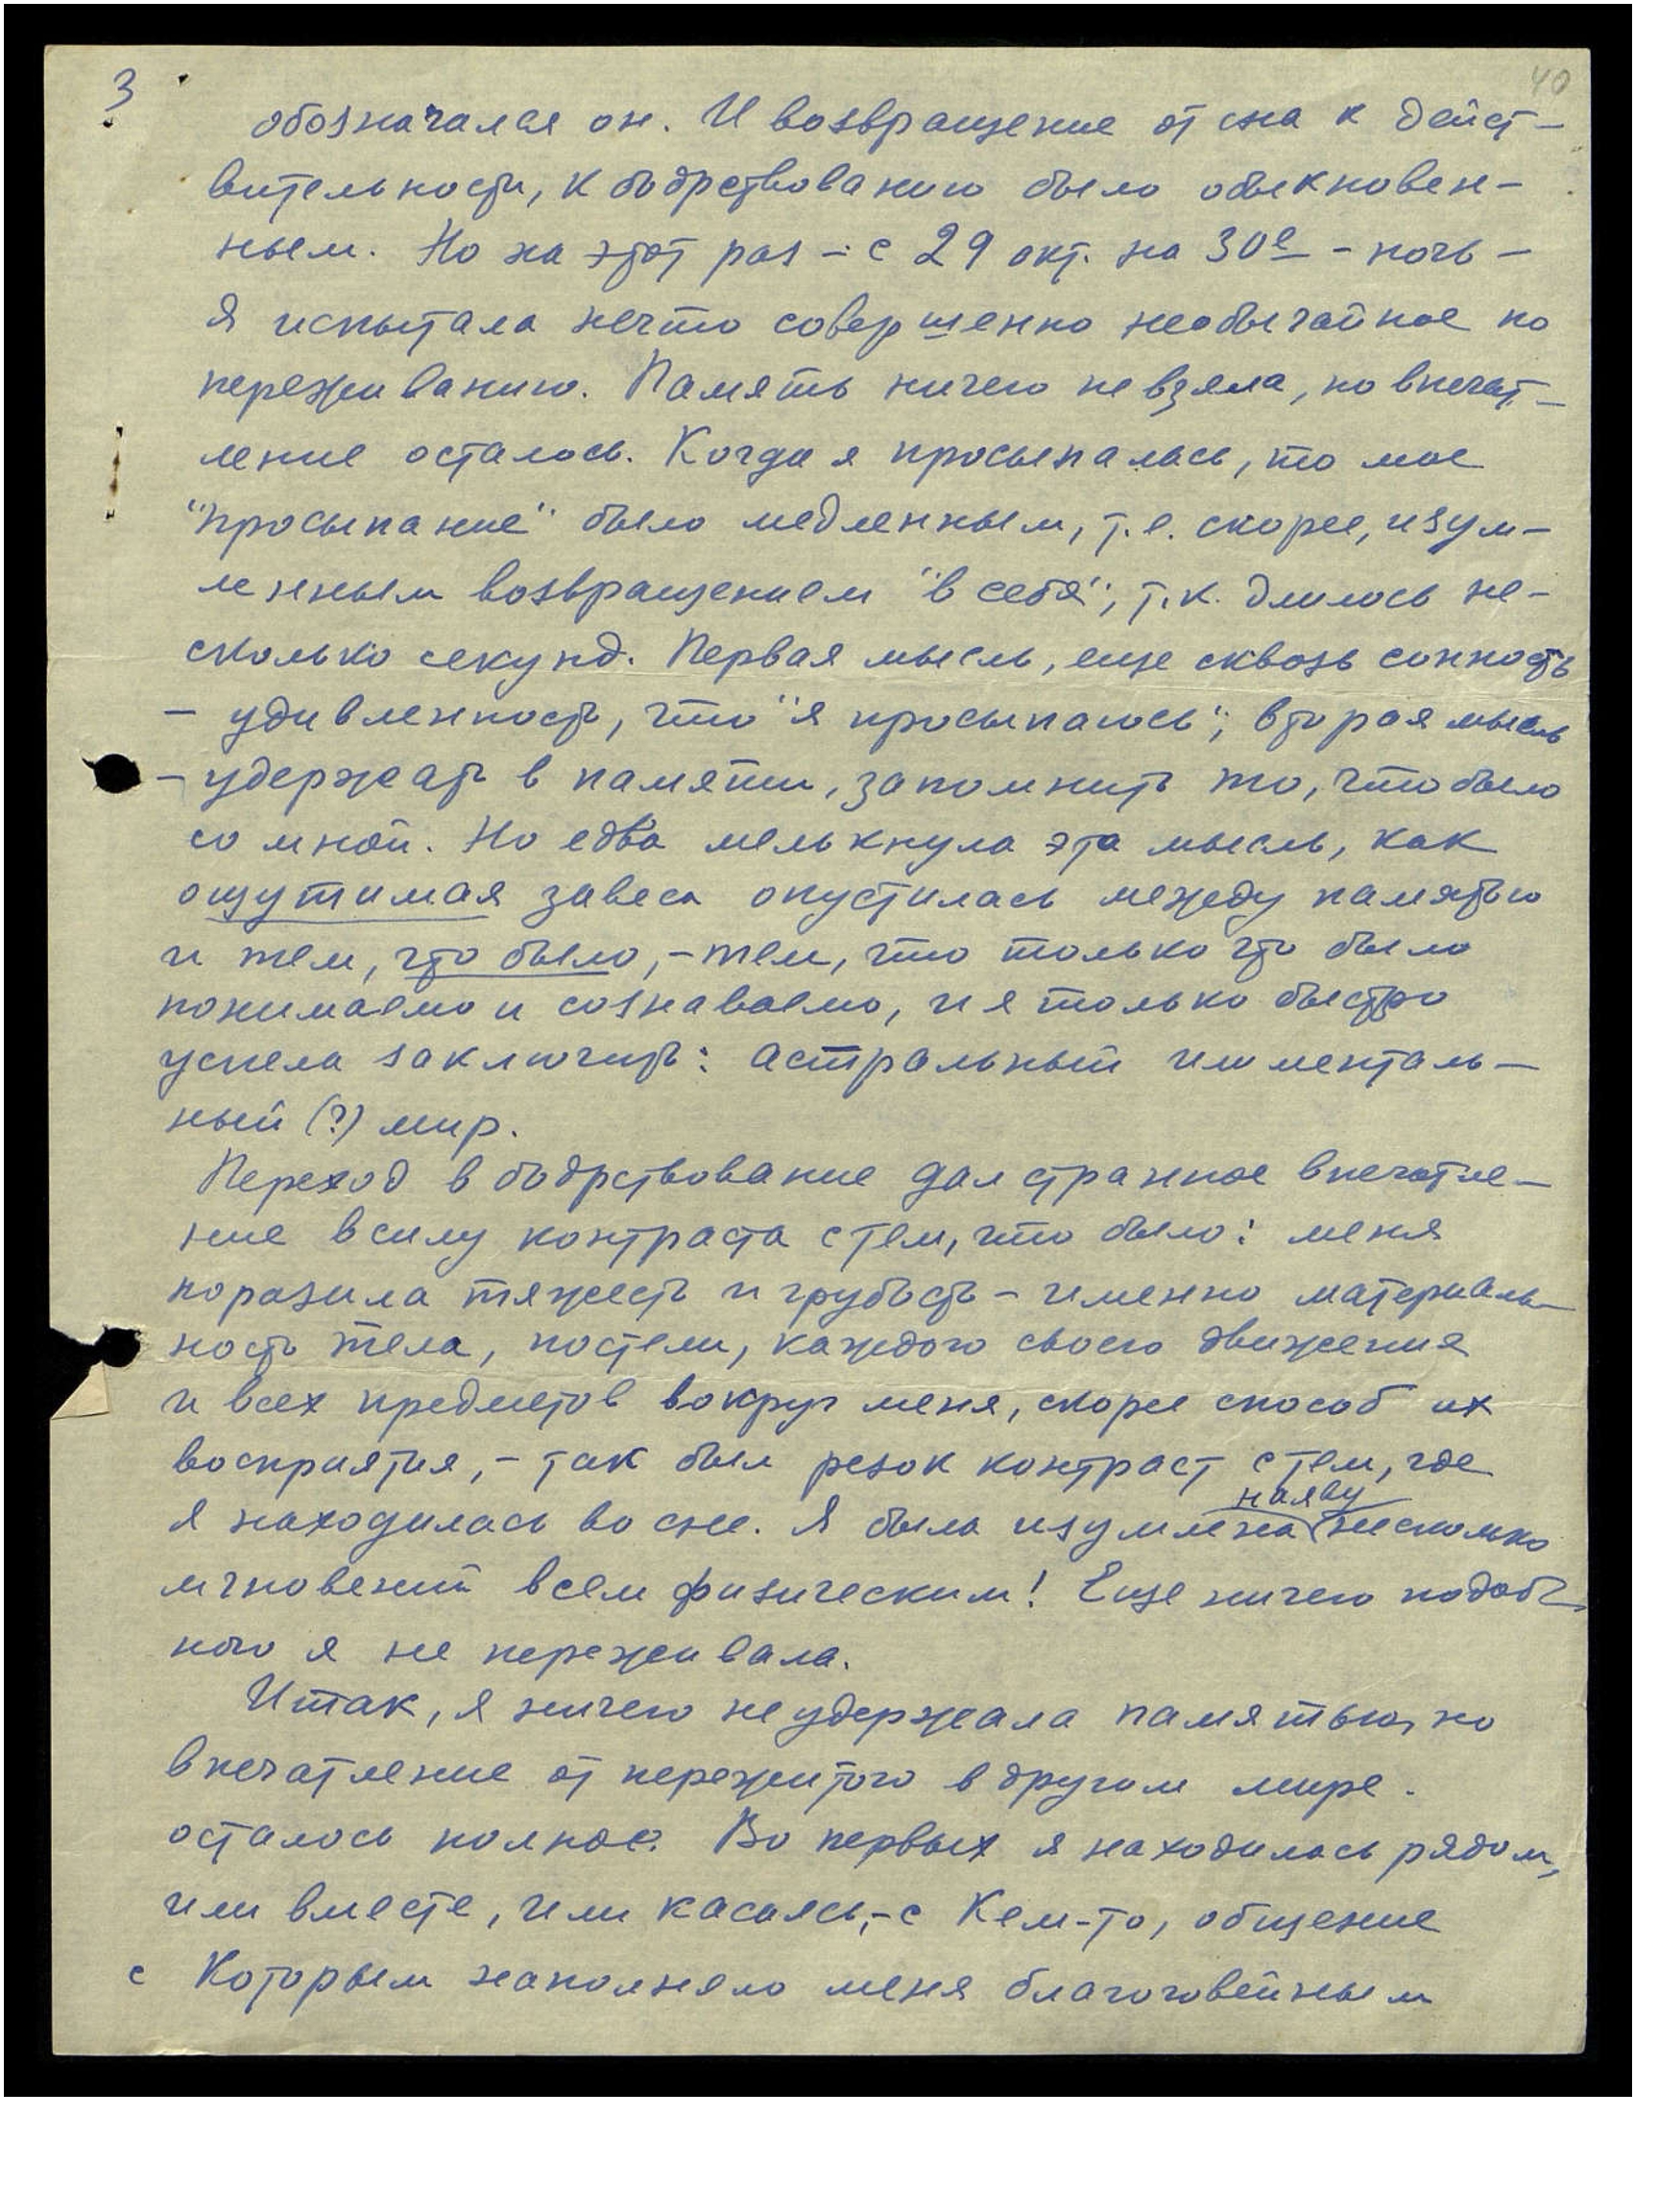 3
40
обозначался он. И возвращение от сна к дейст-
вительности, к бодрствованию было обыкновен-
ным. Но на этот раз - с 29 окт. на 30е - ночь -
я испытала нечто совершенно необычайное по
переживанию. Память ничего не взяла, но впечат-
ление осталось. Когда я просыпалась, то мое
"просыпание" было медленным, т.е. скорее, изум-
ленным возвращением "в себя", т.к. длилось не-
сколько секунд. Первая мысль, еще сквозь сонность
- удивленность, что "я просыпаюсь"; вторая мысль
- удержать в памяти, запомнить то, что было
со мной. Но едва мелькнула эта мысль, как
ощутимая завеса опустилась между памятью
и тем, что было, - тем, что только что было
понимаемо и сознаваемо, и я только быстро
успела заключить: астральный или менталь-
ный (?) мир.
Переход в бодрствование дал странное впечатле-
ние в силу контраста с тем, что было: меня
поразила тяжесть и грубость - именно материаль-
ность тела, постели, каждого своего движения
и всех предметов вокруг меня, скорее способ их
восприятия, - так был резок контраст с тем, где
наяву
я находилась во сне. Я была изумлена несколько
мгновений всем физическим! Еще ничего подоб-
ного я не переживала.
Итак, я ничего не удержала памятью, но
впечатление от пережитого в другом мире
осталось полное. Во первых я находилась рядом,
или вместе, или касаясь, - с Кем-то, общение
с Которым наполняло меня благоговейным